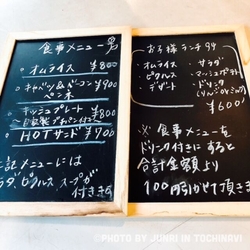 食事メニュー
・オムライス ¥800
・キャベツ&ベーコン ¥900
ペンネ
・キッシュプレート ¥800
HOTサンド ¥900
記メニューには
ダ、ピクルス、スープが
付きます
お子様ランチ
・オムライス ・サラダ
・ピクルス ・マッシュポテト
・デザート ・ドリンク
(りんごorミルク)
¥600
※食事メニューを
ドリンク付きにすると
合計金額より
100円引かせて頂きま
PHOTO BY JUNRI IN TOCHINAVI